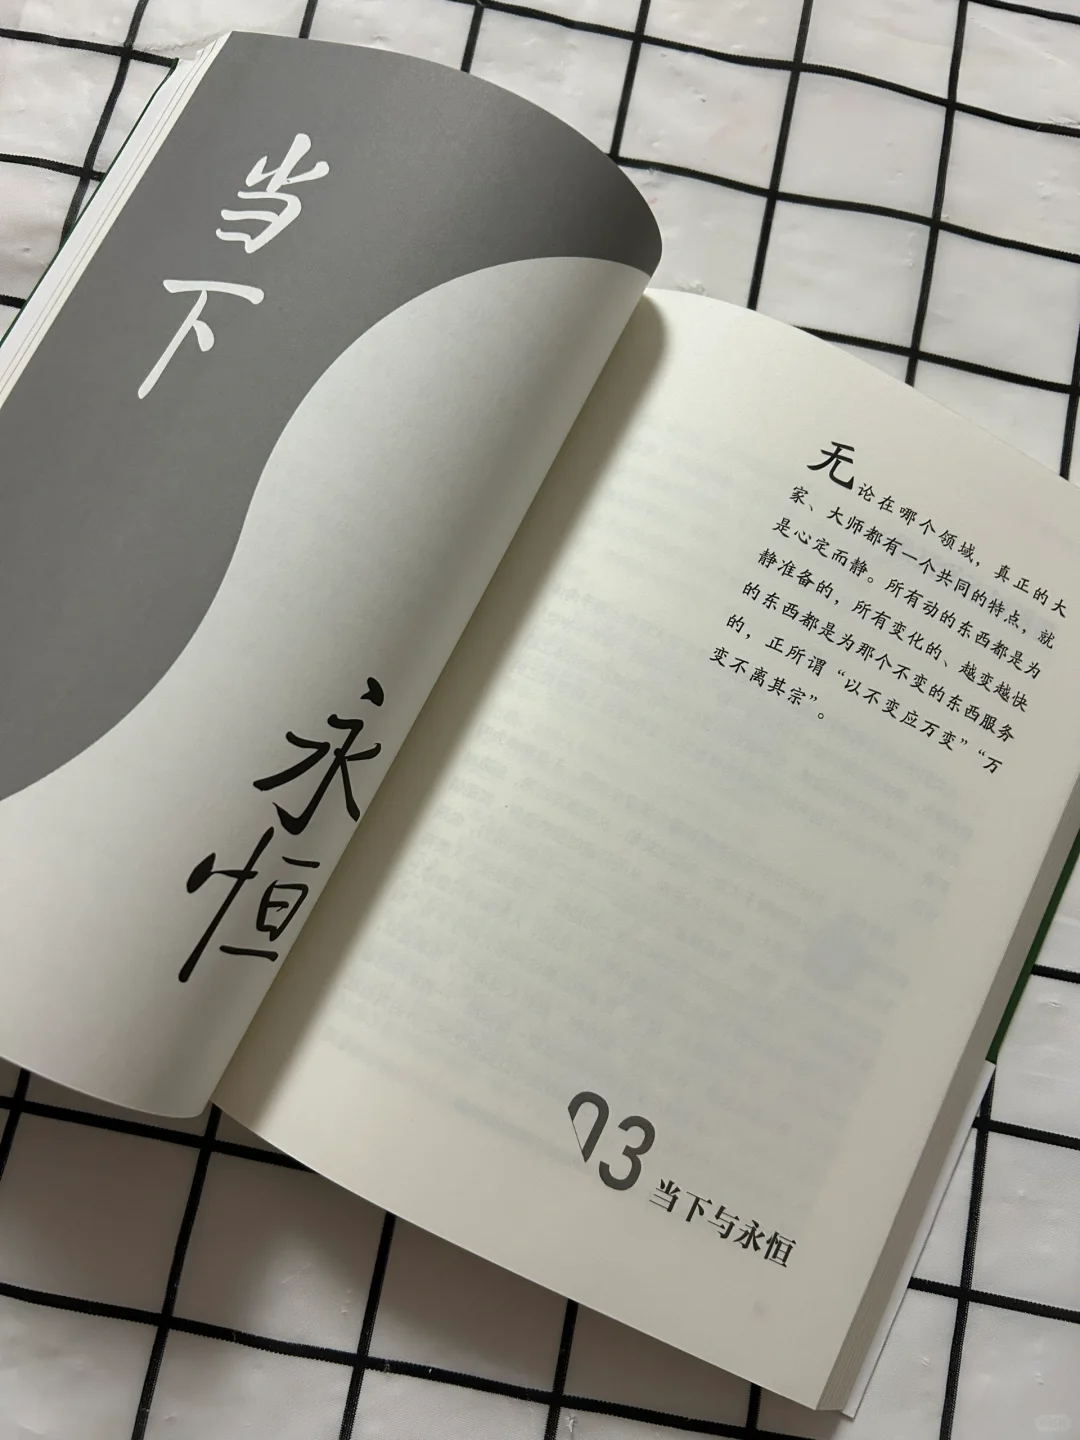 当
下
永
恒
无论在哪个领域，真正的大
家、大师都有一个共同的特点，就
是心定而静。所有动的东西都是为
静准备的，所有变化的、越变越快
的东西都是为那个不变的东西服务
的，正所谓“以不变应万变”“万
变不离其宗”。
03 当下与永恒